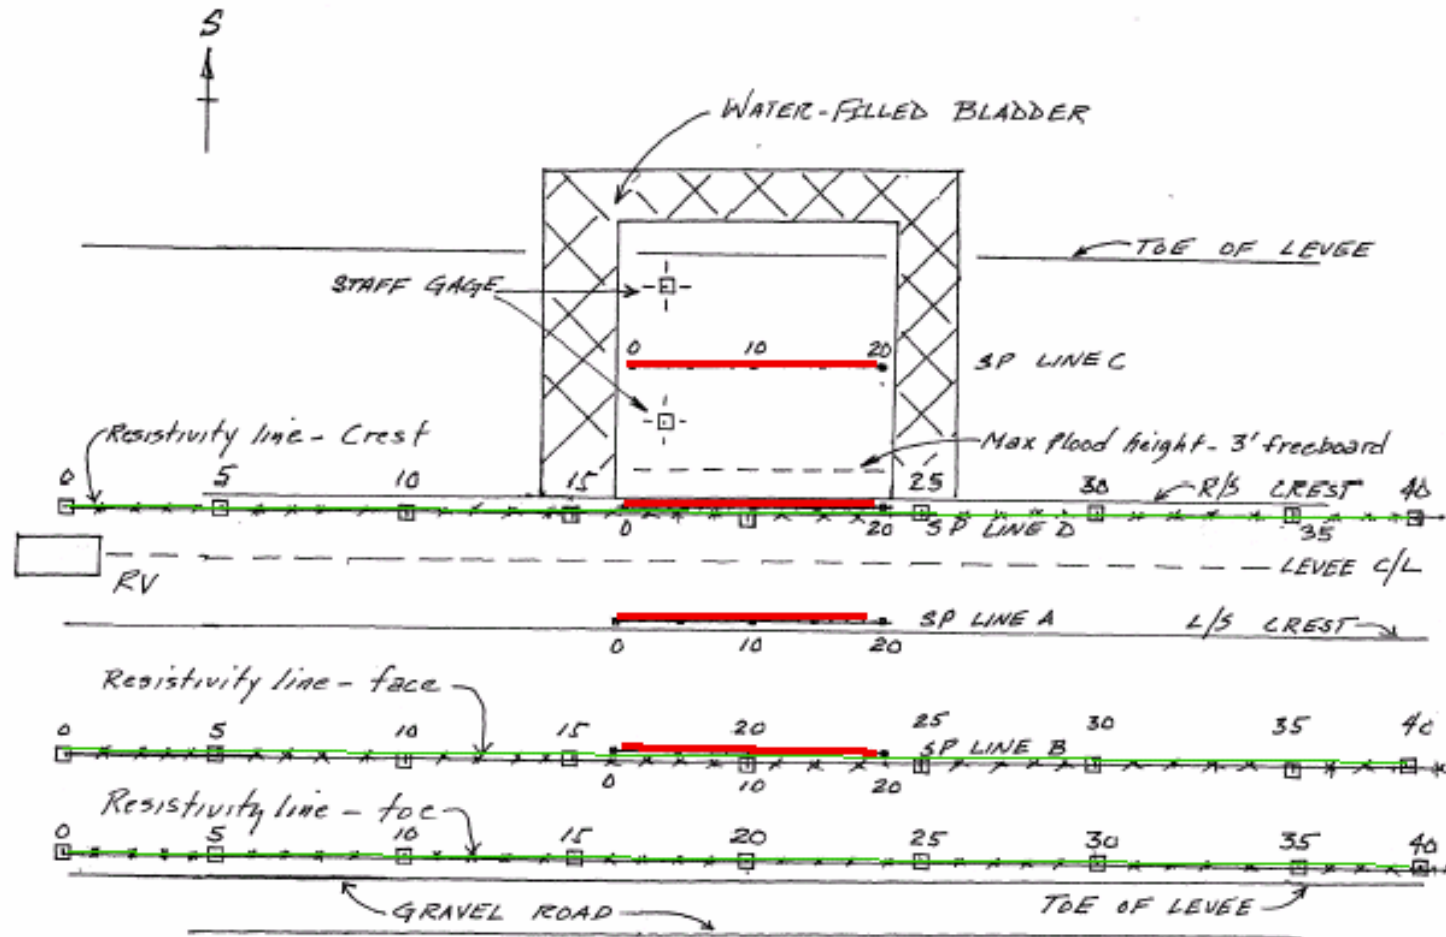 S
WATER-FILLED BLADDER
TOE OF LEVEE
STAFF GAGE
0 10 20
SP LINE C
Resistivity line - Crest
Max flood height - 3' freeboard
0 5 10 15 25 30 R/S CREST 40
0 20 SP LINE D 35
RV
LEVEE C/L
SP LINE A L/S CREST
0 10 20
Resistivity line - face
0 5 10 15 20 25 30 35 40
SP LINE B
0 10 20
Resistivity line - toe
0 5 10 15 20 25 30 35 40
GRAVEL ROAD TOE OF LEVEE